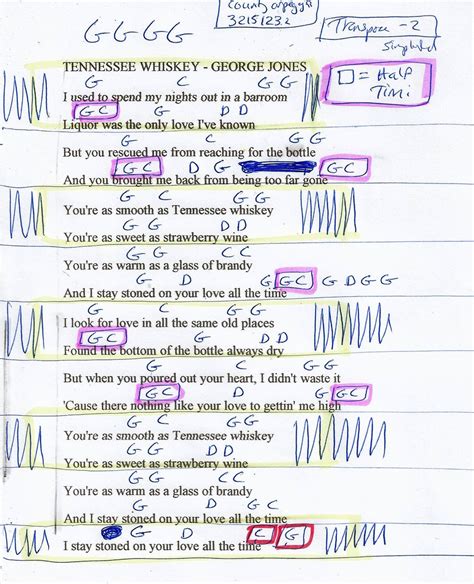 county arpeggio
32151232
G G G G
Transpose -2
simplified
TENNESSEE WHISKEY - GEORGE JONES
= Half
Time
G C G G
I used to spend my nights out in a barroom
G C G D D
Liquor was the only love I've known
G C G G
But you rescued me from reaching for the bottle
G C D G G C
And you brought me back from being too far gone
G C G G
You're as smooth as Tennessee whiskey
G G D D
You're as sweet as strawberry wine
G G C C
You're as warm as a glass of brandy
G D G C G D G G
And I stay stoned on your love all the time
G C G G
I look for love in all the same old places
G C G D D
Found the bottom of the bottle always dry
G C G G
But when you poured out your heart, I didn't waste it
G C D G G C
'Cause there nothing like your love to gettin' me high
G C G G
You're as smooth as Tennessee whiskey
G G D D
You're as sweet as strawberry wine
G G C C
You're as warm as a glass of brandy
G D G C
And I stay stoned on your love all the time
G D C G
I stay stoned on your love all the time